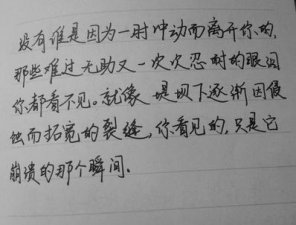 没有谁是因为一时冲动而离开你的,
那些难过无助又一次次忍耐的眼泪
你都看不见。就像 堤坝下逐渐因侵
蚀而拓宽的裂缝,你看见的,只是它
崩溃的那个瞬间。